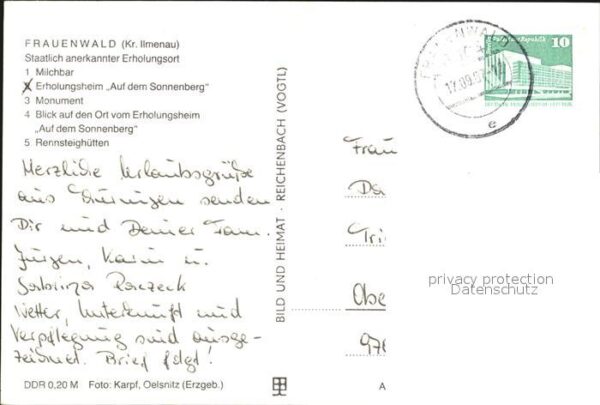 FRAUENWALD (Kr. Ilmenau)
Staatlich anerkannter Erholungsort
1 Milchbar
X Erholungsheim „Auf dem Sonnenberg“
3 Monument
4 Blick auf den Ort vom Erholungsheim
„Auf dem Sonnenberg“
5 Rennsteighütten
Herzliche Urlaubsgrüße
aus Thüringen senden
Dir und Deiner Fam.
Jürgen, Karin u.
Wetter, Unterkunft und
Verpflegung sind ausge-
zeichnet. Brief folgt!
DDR 0,20 M Foto: Karpf, Oelsnitz (Erzgeb.)
BILD UND HEIMAT · REICHENBACH (VOGTL)
FRAUENWALD
17.09.
e
10
Frau
Da
Obe
A
privacy protection
Datenschutz